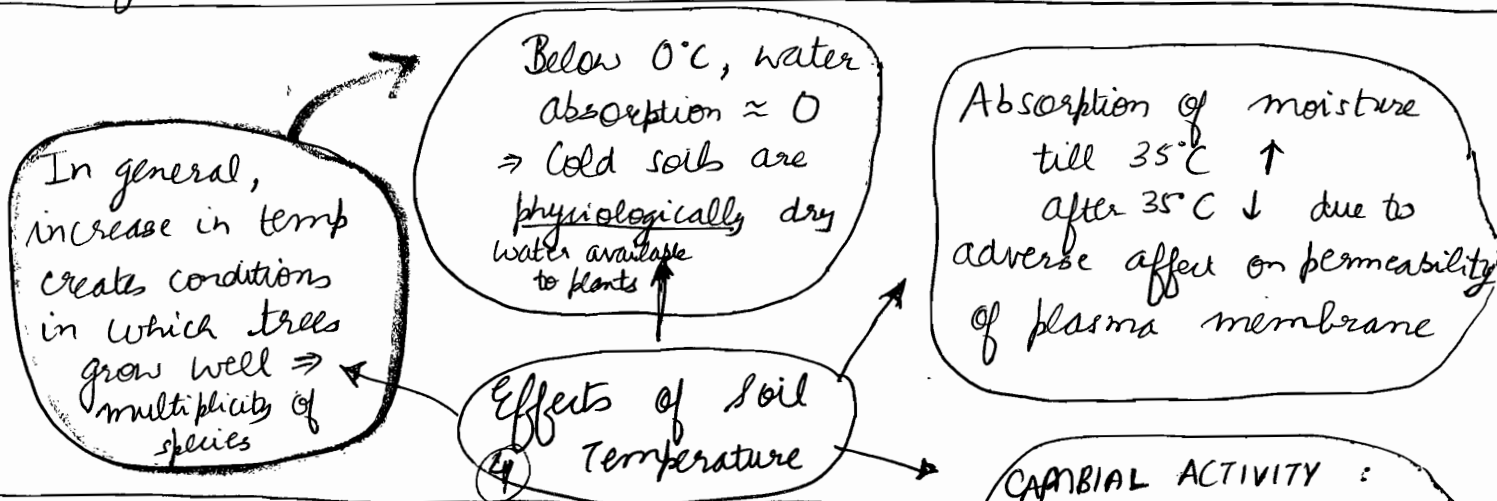 In general,
increase in temp
creates conditions
in which trees
grow well ⇒
multiplicity of
species
Below 0°C, water
absorption ≈ 0
⇒ Cold soils are
physiologically dry
water available
to plants
Absorption of moisture
till 35°C ↑
after 35°C ↓ due to
adverse affect on permeability
of plasma membrane
Effects of Soil
4 Temperature
CAMBIAL ACTIVITY :